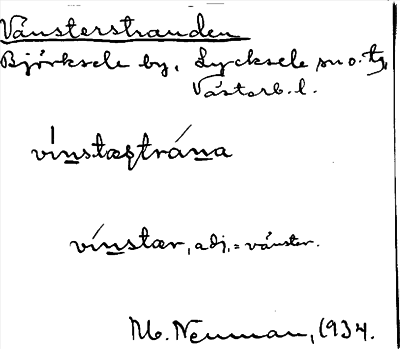 Vänsterstranden
Björksele by, Lycksele sn o. tg,
Västerb. l.
vi̍nstæʂtrána
vínstær, adj. = vänster.
M. Neuman, 1934.